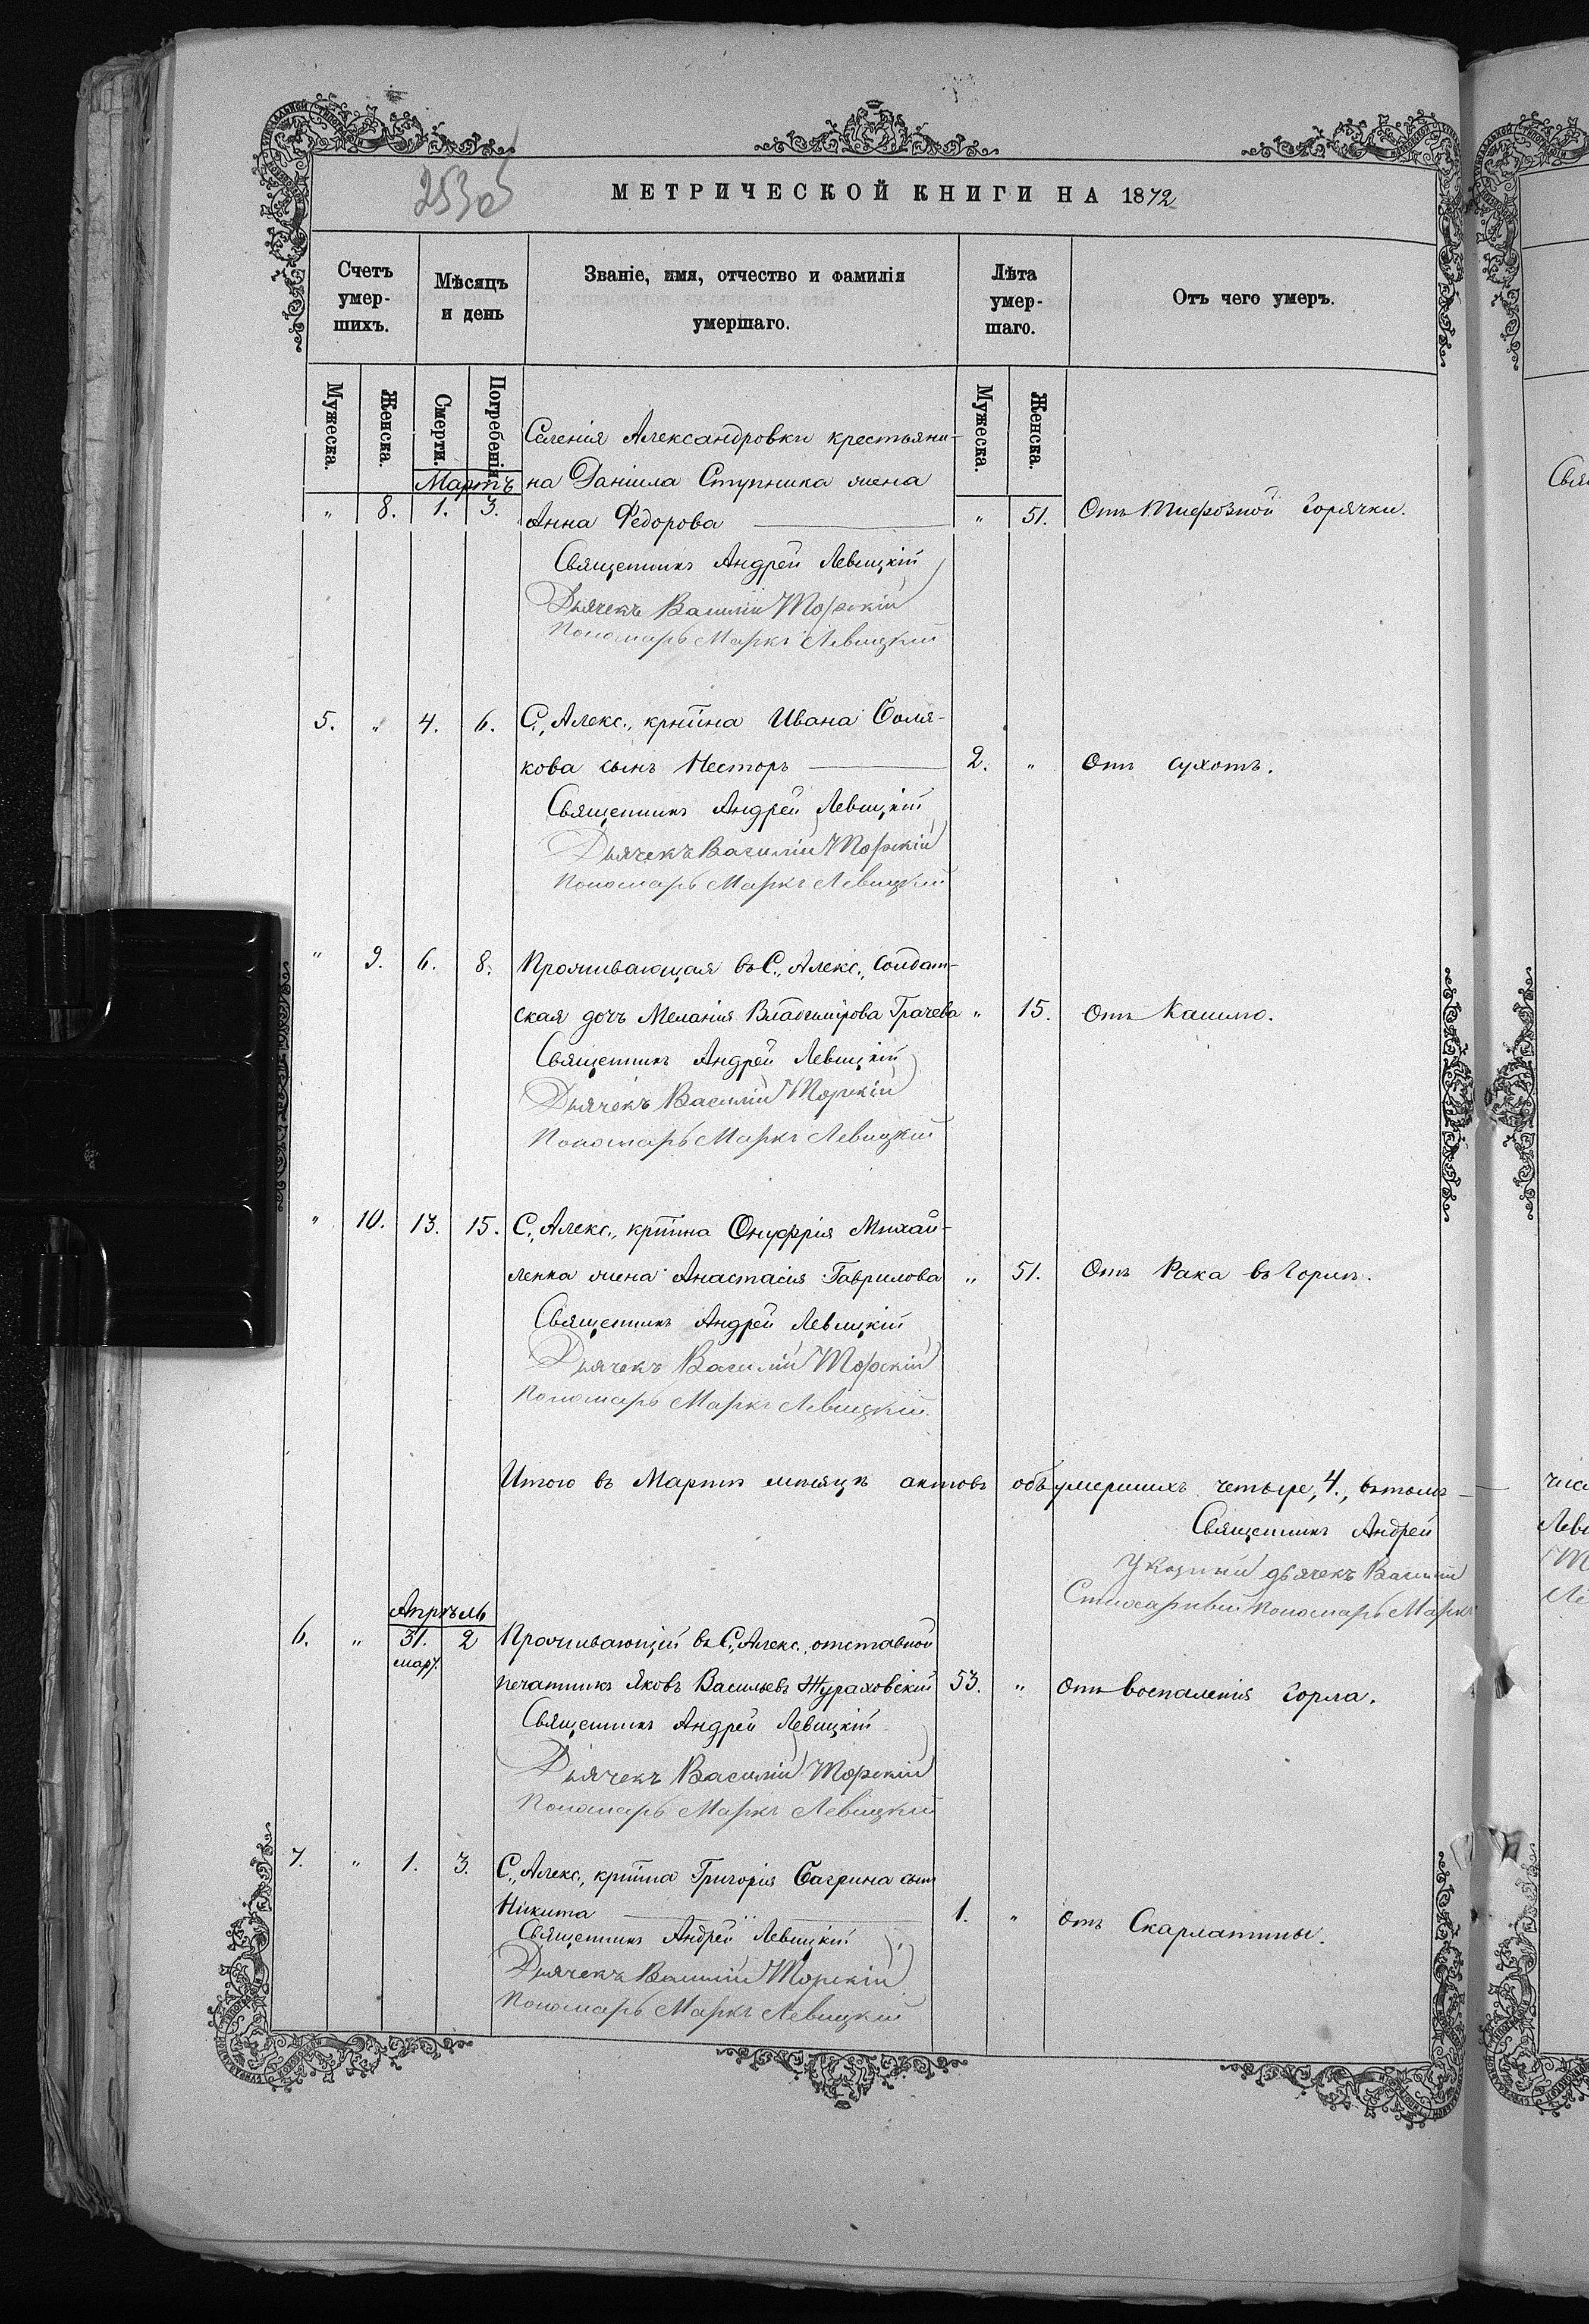 253об
МЕТРИЧЕСКОЙ КНИГИ НА 1872
Счетъ умер- шихъ.
Мѣсяцъ и день
Званіе, имя, отчество и фамилія умершаго.
Лѣта умер- шаго.
Отъ чего умеръ.
Мужеска. Женска. Смерти. Погребенія. Мужеска. Женска.
Селенія Александровки крестьяни-
Мартъ на Даніила Ступника жена
" 8. 1. 3. Анна Федорова " 51. Отъ Тифозной Горячки.
Священникъ Андрей Левицкій
Дьячекъ Василій Торскій
Пономарь Маркъ Левицкій
5. " 4. 6. С., Алекс., крнтина Ивана Соля-
кова сынъ Несторъ 2. " Отъ сухотъ.
Священникъ Андрей Левицкій
Дьячекъ Василій Торскій
Пономарь Маркъ Левицкій
" 9. 6. 8. Проживающая въ С., Алекс., Солдат-
ская дочь Меланія Владимірова Грачева " 15. Отъ Кашлю.
Священникъ Андрей Левицкій
Дьячекъ Василій Торскій
Пономарь Маркъ Левицкій
" 10. 13. 15. С., Алекс., кртина Онуфрія Михай-
ленка жена Анастасія Гаврилова " 51. Отъ Рака въ Горлѣ.
Священникъ Андрей Левицкій
Дьячекъ Василій Торскій
Пономарь Маркъ Левицкій
Итого въ Мартѣ мѣсяцѣ актовъ объ умершихъ четыре, 4., въ томъ
Священникъ Андрей
дьячекъ Василій
Пономарь Маркъ
Апрѣль
6. " 31. 2 Проживающій въ С., Алекс., отставной
мар.
печатникъ Яковъ Васильевъ Жураховскій 53. " Отъ воспаленія Горла.
Священникъ Андрей Левицкій
Дьячекъ Василій Торскій
Пономарь Маркъ Левицкій
7. " 1. 3. С., Алекс., кртина Григорія Багрина сынъ
Никита 1. " отъ Скарлатины.
Священникъ Андрей Левицкій
Дьячекъ Василій Торскій
Пономарь Маркъ Левицкій